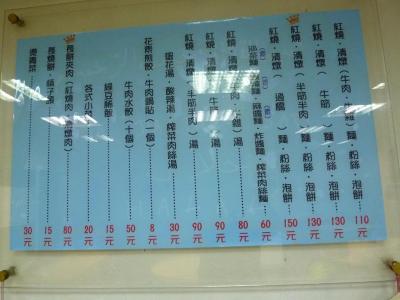 紅燒．清燉（牛肉．牛雜）麵．粉絲．泡餅 110元
紅燒．清燉（牛筋）麵．粉絲．泡餅 130元
紅燒．清燉（半筋半肉）麵．粉絲．泡餅 130元
紅燒．清燉（過橋）麵．粉絲．泡餅 150元
炸醬麵．榨菜肉絲麵 60元
紅燒．清燉（牛肉．牛雜）湯 80元
紅燒．清燉（牛筋）湯 90元
紅燒．清燉（半筋半肉）湯 90元
蛋花湯．酸辣湯．榨菜肉絲湯 30元
花素煎餃．牛肉鍋貼（一個） 8元
牛肉水餃（十個） 50元
綠豆稀飯 15元
各式小菜 20元
蔥餅夾肉（紅燒肉．清燉肉） 80元
15元
燙青菜 30元